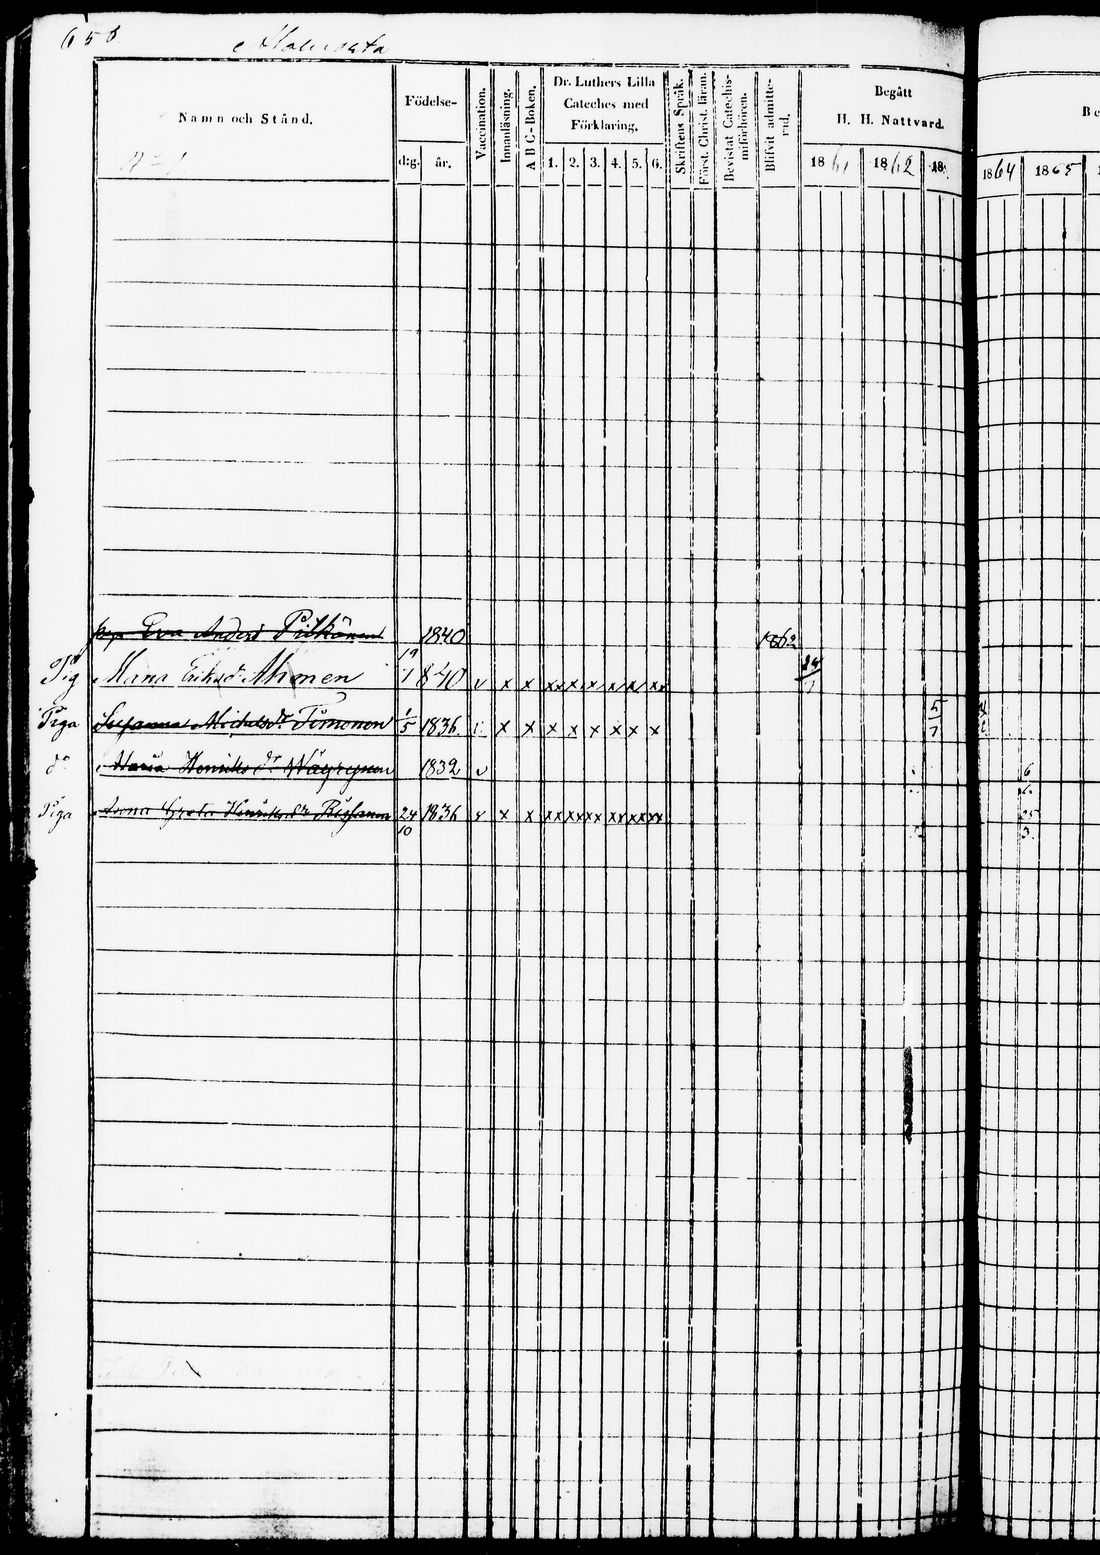 658
Namn och Stånd.
Födelse-
d:g.
år.
Vaccination.
Innanläsning.
A B C-Boken.
Dr. Luthers Lilla
Cateches med
Förklaring.
1. 2. 3. 4. 5. 6.
Skriftens Språk.
Först. Christ. läran.
Bevistat Catechis-
miförhören.
Blifvit admitte-
rad.
Begått
H. H. Nattvard.
1861 1862 18
1864 1865
Eva Anders 1840
Pig Maria Eriksdr 19/1 840 v x x xx x x x x xx
Piga Susanna Michelsdr Timonen 1/5 1836 x x x x x x x x 5/7
do Maria Henriks dr Wäyrynen 1832 v 6
Piga Anna Greta Henriks dr 24/10 1836 v x x xx xx xx xx xx xx 25/3